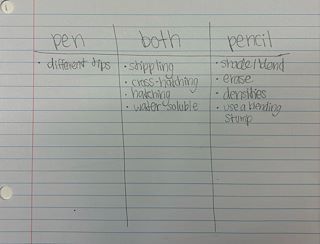 pen both pencil
• different tips
• stippling
• cross-hatching
• hatching
• water soluble
• shade/blend
• erase
• densities
• use a blending
stump